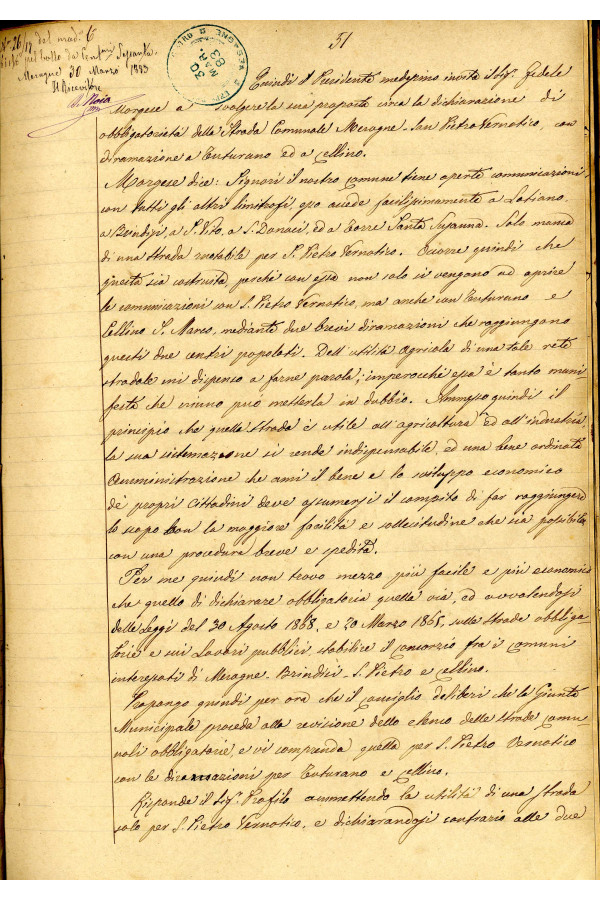 N. 26/17 del mod. 6
per bollo da Cent. Sessanta
Mesagne 30 Marzo 1883
Il Ricevitore
51
30
MAR
83
Quindi il Presidente medesimo invita il Sig. Fedele
Morgese a svolgere la sua proposta circa la dichiarazione di
obbligatorietà della Strada Comunale Mesagne-San Pietro Vernotico, con
diramazione a Tuturano ed a Cellino.
Morgese dice: Signori il nostro comune tiene aperte comunicazioni
con tutti gli altri limitrofi, esso accede facilissimamente a Latiano,
a Brindisi, a S. Vito, a S. Donaci, ed a Torre Santa Susanna. Solo manca
di una strada rotabile per S. Pietro Vernotico. Occorre quindi che
questa sia costruita perché con essa non solo si vengono ad aprire
le comunicazioni con S. Pietro Vernotico, ma anche con Tuturano e
Cellino S. Marco, mediante due brevi diramazioni che raggiungano
questi due centri popolati. Dell'utilità agricola di una tale rete
stradale mi dispenso a farne parola; imperocché essa è tanto mani
festa che niuno può metterla in dubbio. Ammesso quindi il
principio che quella strada è utile all'agricoltura ed all'industria,
la sua sistemazione si rende indispensabile, ed una bene ordinata
Amministrazione che ami il bene e lo sviluppo economico
de' propri Cittadini deve assumersi il compito di far raggiungere
lo scopo con la maggiore facilità e sollecitudine che sia possibile
con una procedura breve e spedita.
Per me quindi non trovo mezzo più facile e più economico
che quello di dichiarare obbligatoria quella via, ed avvalendosi
delle Leggi del 30 Agosto 1868, e 20 Marzo 1865, sulle strade obbliga
torie e sui Lavori pubblici, stabilire il consorzio fra i comuni
interessati di Mesagne-Brindisi-S. Pietro e Cellino.
Propongo quindi per ora che il consiglio deliberi che la Giunta
Municipale proceda alla revisione dello elenco delle strade comu
nali obbligatorie, e vi comprenda quella per S. Pietro Vernotico
con le diramazioni per Tuturano e Cellino.
Risponde il Sig. Profilo ammettendo la utilità di una strada
solo per S. Pietro Vernotico, e dichiarandosi contrario alle due